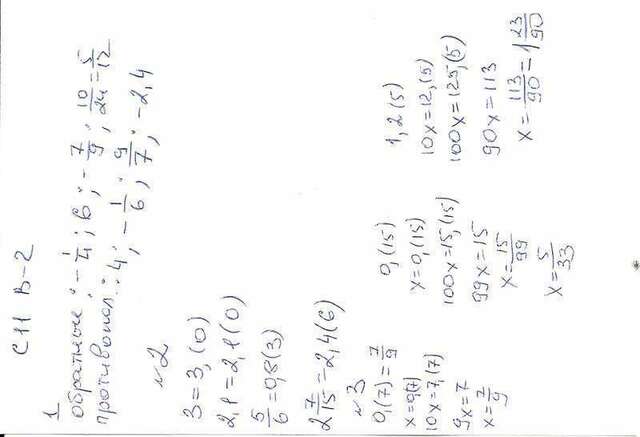 С11 В-2
1
обратные: -1/4; 6; -7/9; 10/24=5/12
противопол.: 4; -1/6; 9/7; -2,4
№2
3=3,(0)
2,1=2,1(0)
5/6=0,8(3)
2 7/15=2,4(6)
№3
0,(7)=7/9
x=0,(7)
10x=7,(7)
9x=7
x=7/9
0,(15)
x=0,(15)
100x=15,(15)
99x=15
x=15/99
x=5/33
1,2(5)
10x=12,(5)
100x=125,(5)
90x=113
x=113/90=1 23/90